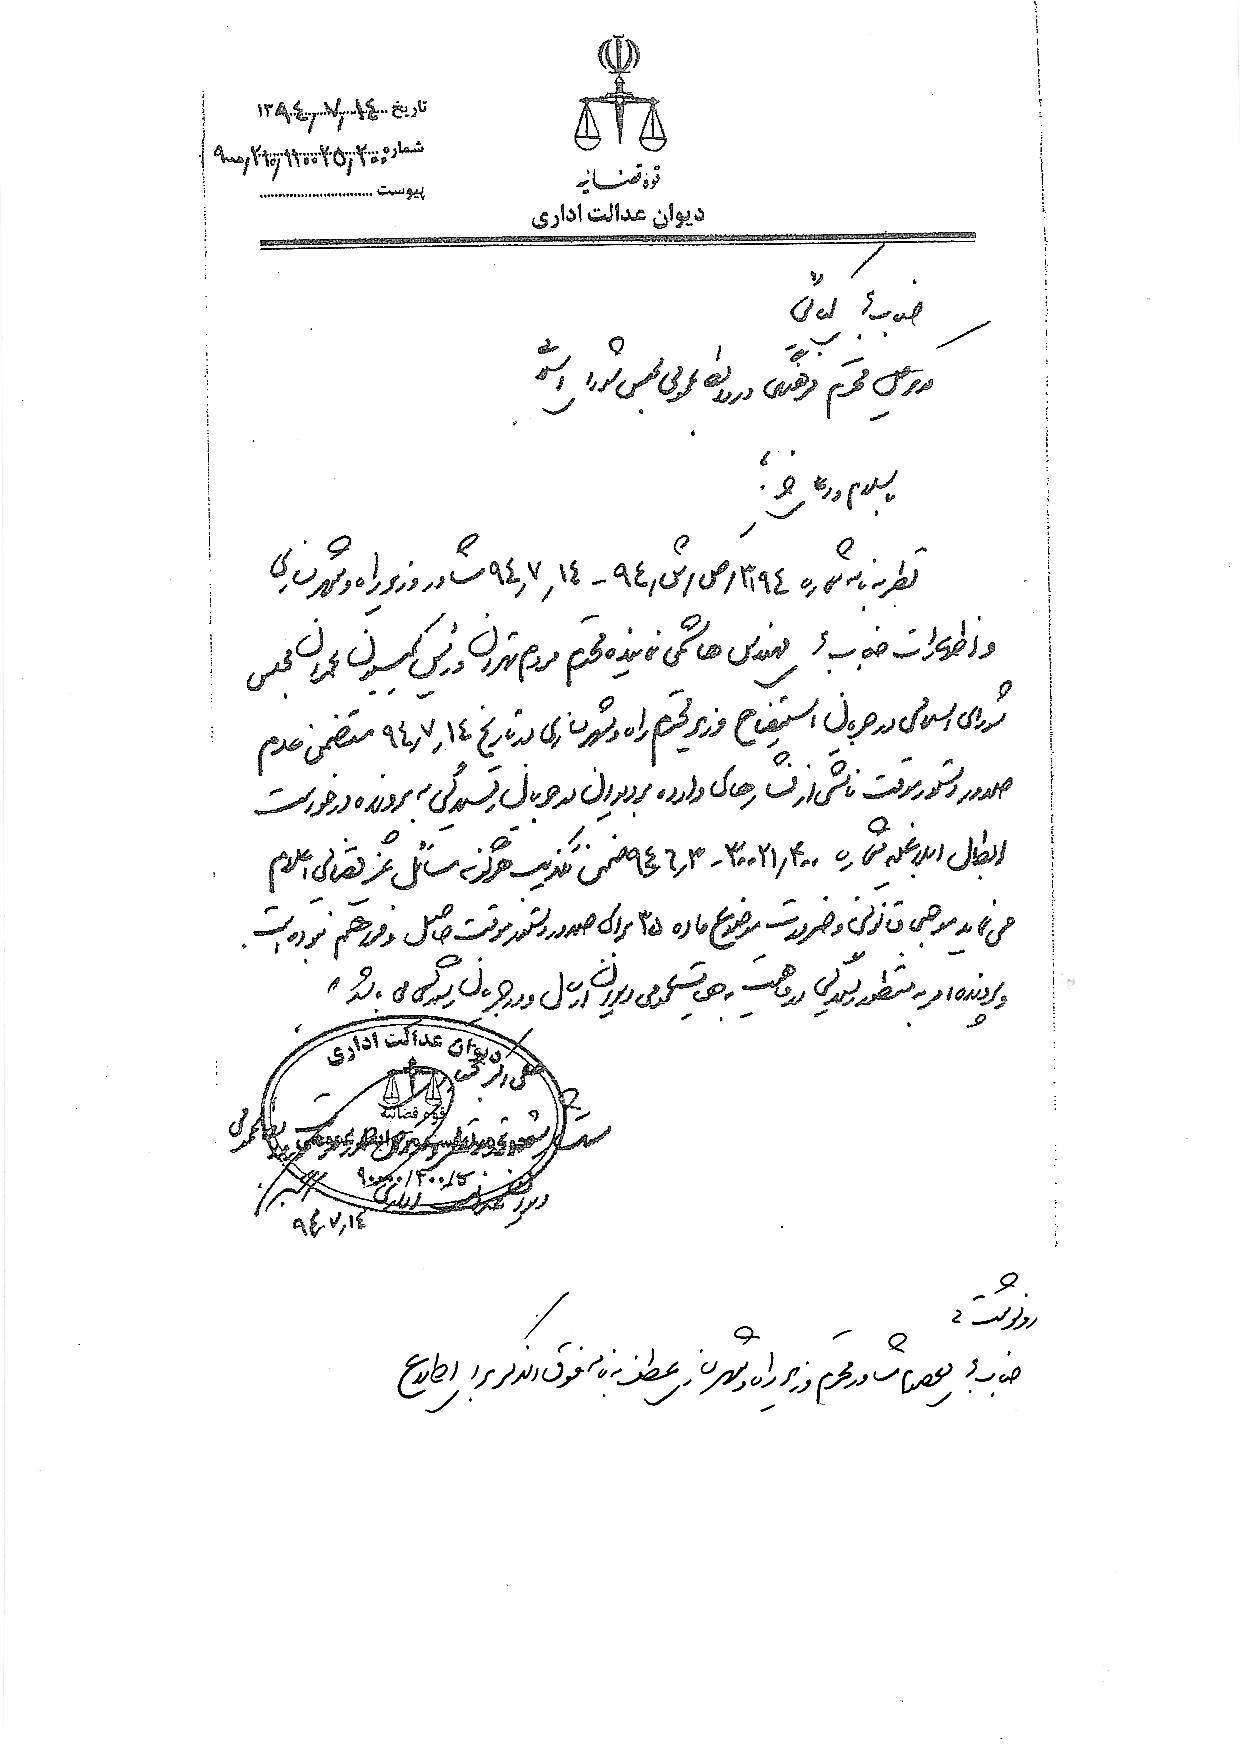 تاریخ ۱۳۹۴٫۷٫۱۴
شماره ۲۱۰٫۱۱۰۰۲۵٫۲۰۰
پیوست
قوه قضائیه
دیوان عدالت اداری
جناب آقای
مدیرکل محترم فرهنگی و روابط عمومی مجلس شورای اسلامی
با سلام و
نظر به نامه شماره ۳۱۹۴/ص/ش/۹۴ - ۹۴٫۷٫۱۴ مشاور وزیر راه و شهرسازی
و اظهارات جناب آقای مهندس هاشمی نماینده محترم مردم تهران و رئیس کمیسیون عمران مجلس
شورای اسلامی در جریان استیضاح وزیر محترم راه و شهرسازی در تاریخ ۹۴٫۷٫۱۴ متضمن عدم
صدور دستور موقت ناشی از فشارهای وارده بر دیوان در جریان رسیدگی به پرونده درخواست
ابطال ابلاغیه شماره ۳۰۰۲۱٫۴۰۰ - ۹۴٫۶٫۳ ضمن تکذیب هرگونه مسائل غیر قضائی اعلام
می نماید موجبی قانونی و ضرورت موضوع ماده ۳۵ برای صدور دستور موقت حاصل و فراهم نبوده است.
و پرونده امر به منظور رسیدگی در ماهیت به هیات عمومی دیوان ارسال و در جریان رسیدگی می باشد
دیوان عدالت اداری
قوه قضائیه
دیوان عدالت اداری
۹۰۰۰۰/۲۰۰/
۹۴٫۷٫۱۴
رونوشت:
جناب آقای مشاور محترم وزیر راه و شهرسازی عطف به نامه فوق الذکر برای اطلاع